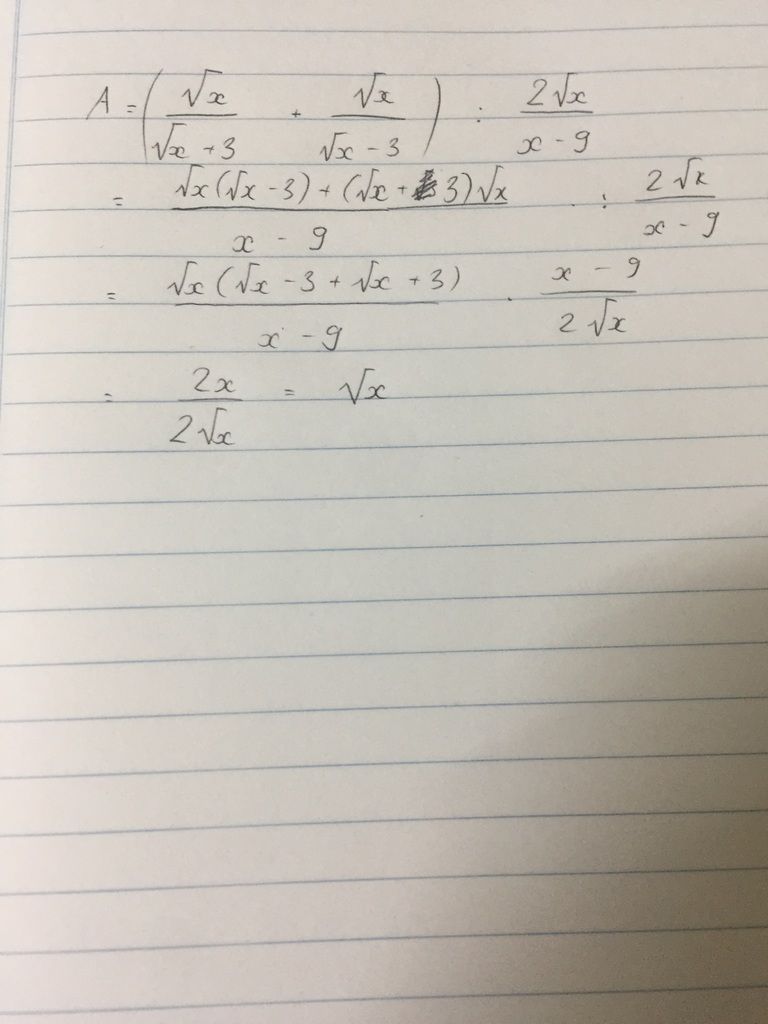 A = (√x/(√x + 3) + √x/(√x - 3)) : 2√x/(x - 9)
= (√x(√x - 3) + (√x + 3)√x)/(x - 9) : 2√x/(x - 9)
= √x(√x - 3 + √x + 3)/(x - 9) . (x - 9)/(2√x)
= 2x/(2√x) = √x